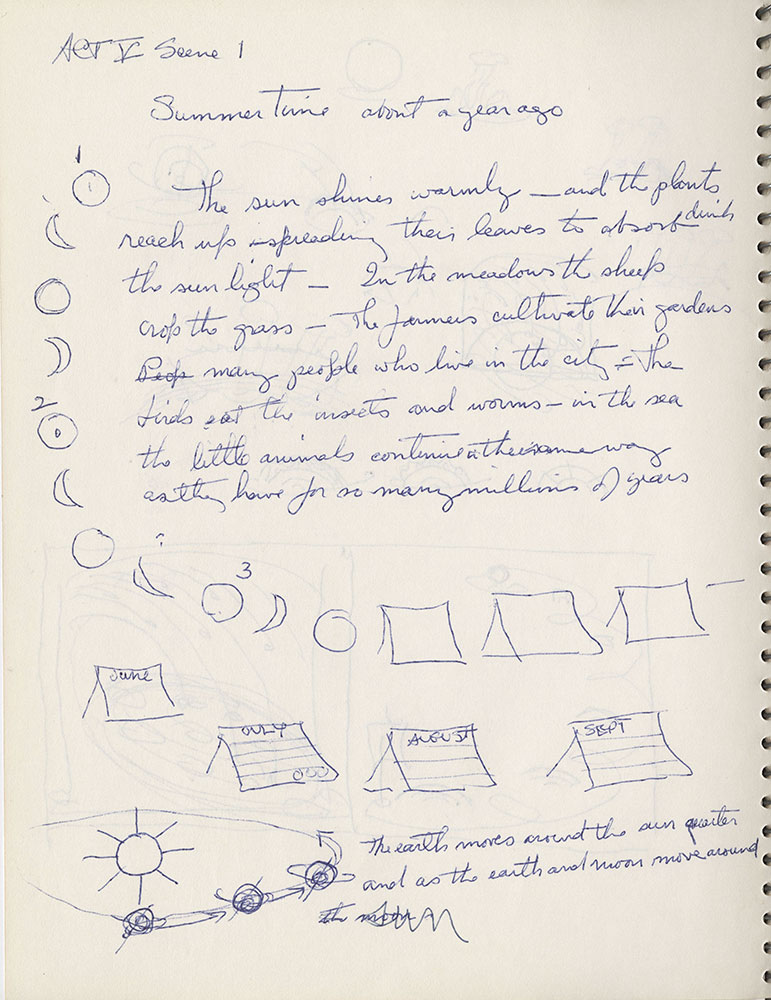 ACT V Scene 1
Summer Time about a year ago
1
The sun shines warmly — and the plants
reach up spreading their leaves to absorb drink
the sun light — In the meadows the sheep
crop the grass — The farmers cultivate their gardens
Peop many people who live in the city = The
2
birds eat the insects and worms — in the sea
the little animals continue the same way
as they have for so many millions of years
3
June
JULY
AUGUST
SEPT
The earth moves around the sun quarter
and as the earth and moon move around
the moon SUN